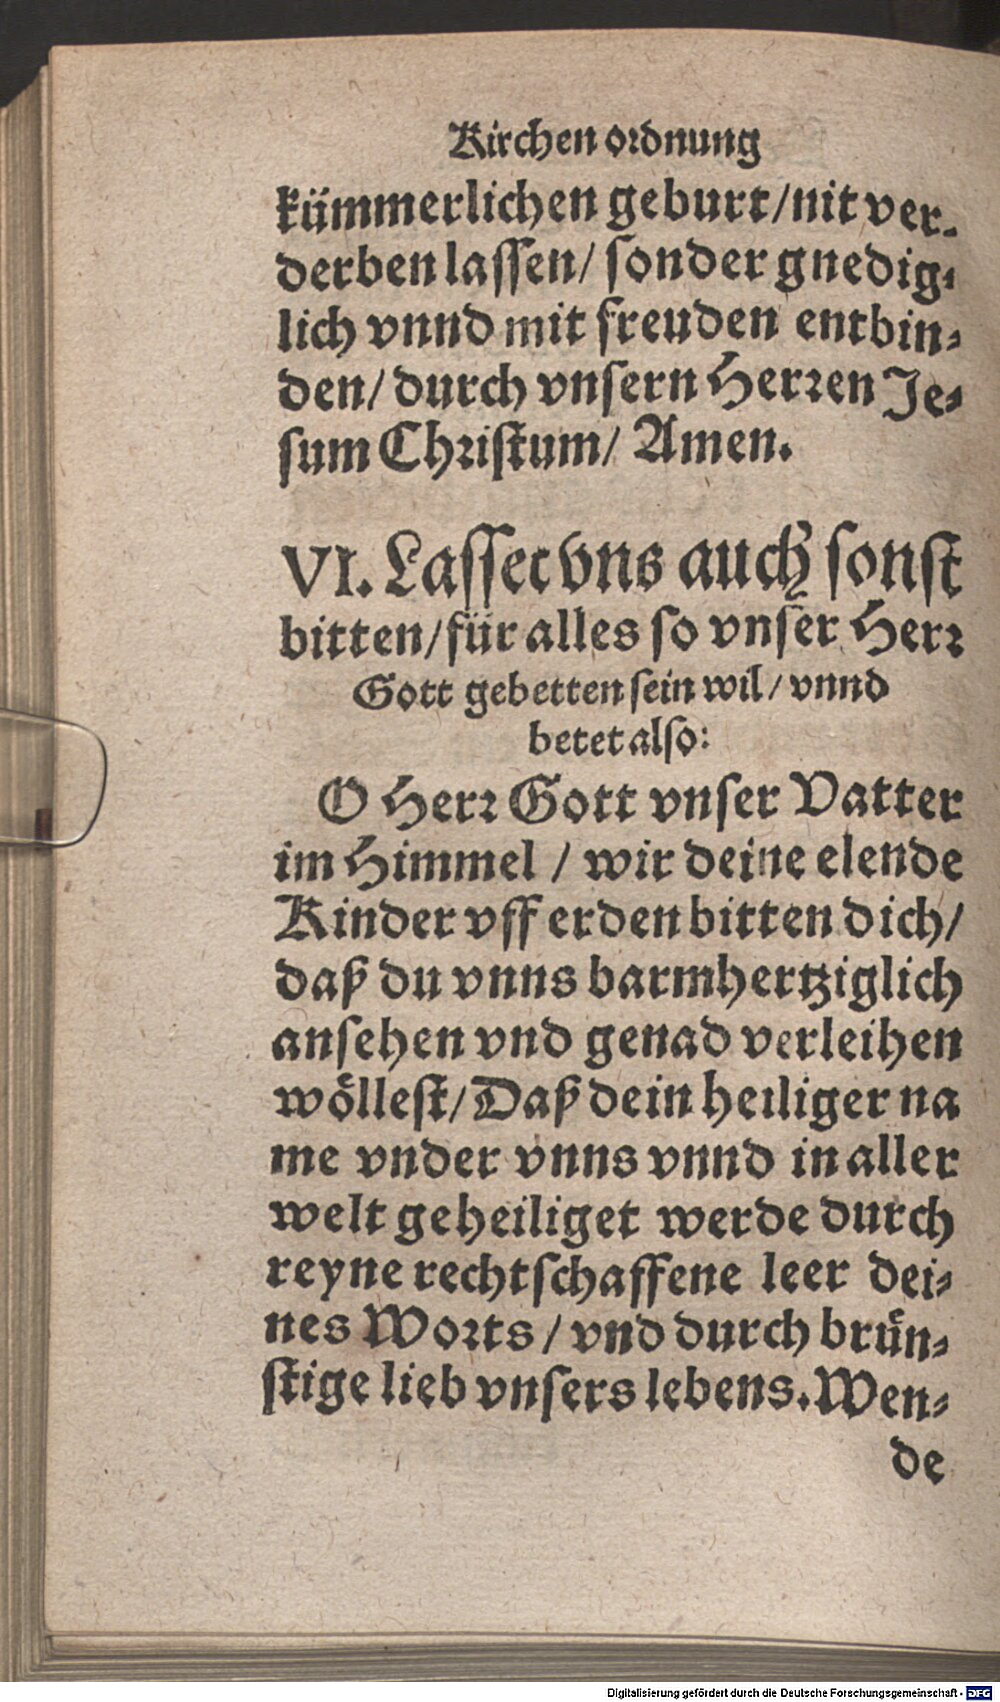 Kirchen ordnung
kümmerlichen geburt/nit ver-
derben lassen/ sonder gnedig-
lich vnnd mit freuden entbin-
den/ durch vnsern Herren Je-
sum Christum/ Amen.
VI. Lasset vns auch sonst
bitten/für alles so vnser Herr
Gott gebetten sein wil/ vnnd
betet also:
O Herr Gott vnser Vatter
im Himmel / wir deine elende
Kinder vff erden bitten dich/
daß du vnns barmhertziglich
ansehen vnd genad verleihen
wöllest/ Daß dein heiliger na
me vnder vnns vnnd in aller
welt geheiliget werde durch
reyne rechtschaffene leer dei-
nes Worts/ vnd durch brün-
stige lieb vnsers lebens. Wen-
de
Digitalisierung gefördert durch die Deutsche Forschungsgemeinschaft - DFG